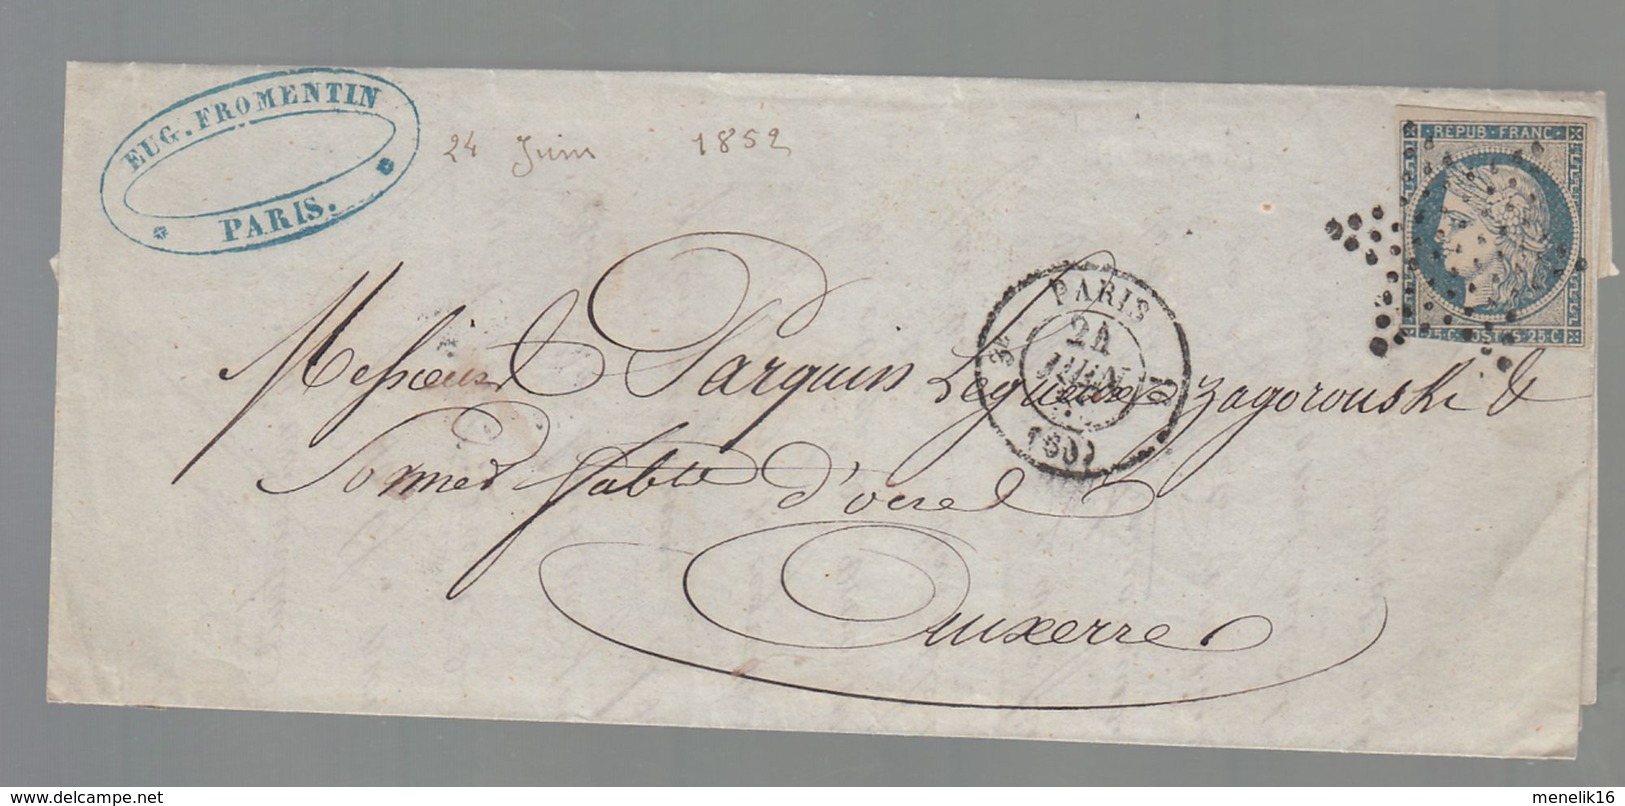 EUG. FROMENTIN
PARIS.
24 Juin 1852
REPUB·FRANC
25·C POSTES 25·C
PARIS
24
JUIN
(60)
Messieurs Parquin Legueux Zagorouski &
Sonnet fabts d'ocre
Auxerre
www.delcampe.net
menelik16